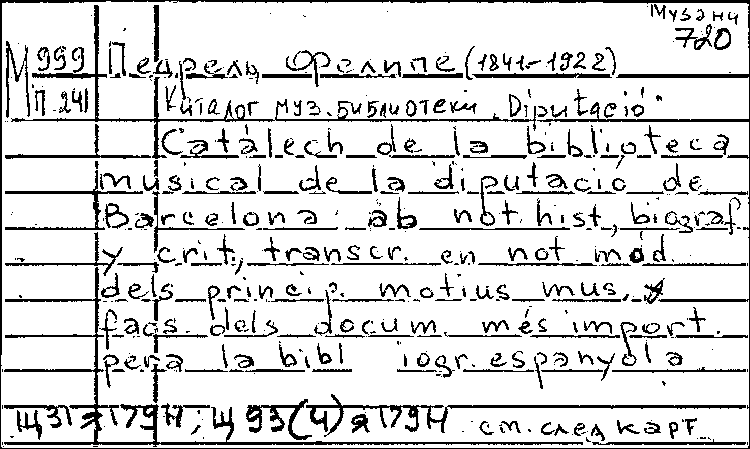 Музэнч
720
М 999 Педрель, Фелипе (1841-1922)
П 241 Каталог муз. библиотеки „Diputació“
Catàlech de la biblioteca
musical de la diputació de
Barcelona ab not. hist., biograf.
y crit., transcr. en not. mód.
dels princip. motius mus. y
facs. dels docum. més import.
pera la bibliogr. espanyola.
Щ31я179Н; Щ93(4)я179Н см. след карт.